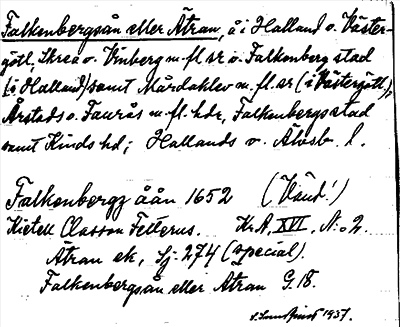 Falkenbergsån eller Ätran, å i Halland o. Väster-
götl. Skrea o. Vinberg m. fl. sr o. Falkenberg stad
(i Halland) samt Mårdaklev m. fl. sr (i Västergötl.),
Årstads o. Faurås m. fl. hdr, Falkenbergs stad
samt Kinds hd; Hallands o. Älvsb. l.
Falkenbergz åån 1652 (Vänd!)
Kietell Classon Felterus. KrA, XVI, N:o 2.
Ätran ek, Sj. 274 (special).
Falkenbergsån eller Ätran G. 18.
1937.